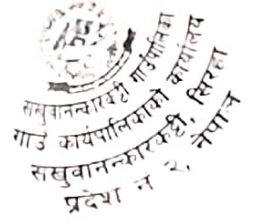 सखुवानन्कारकट्टी गाउँपालिका
गाउँ कार्यपालिकाको कार्यालय
सखुवानन्कारकट्टी, सिरहा
प्रदेश नं २, नेपाल